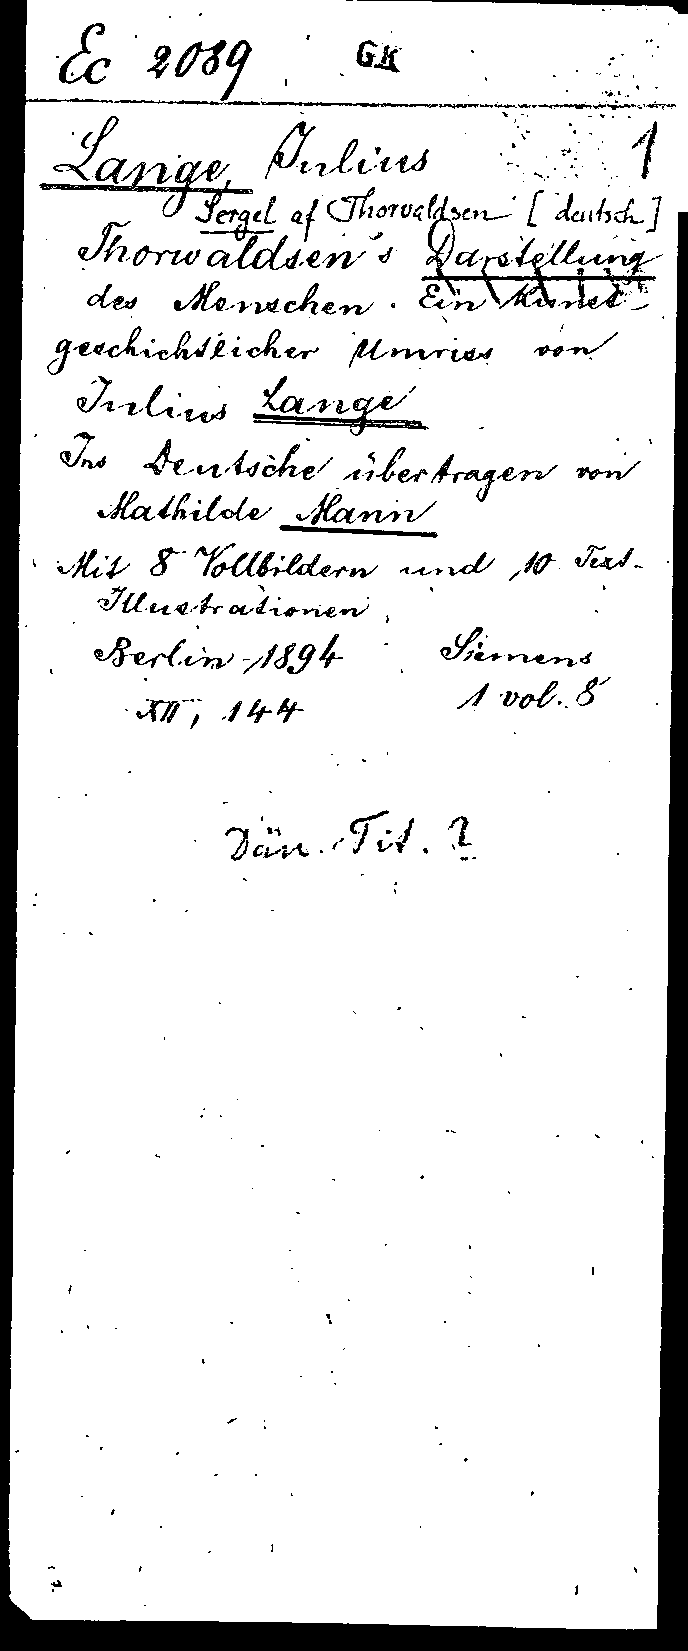 Ec 2089 GK
1
Lange, Julius
Sergel af Thorvaldsen [deutsch]
Thorwaldsen's Darstellung
des Menschen. Ein Kunst-
geschichtlicher Umriss von
Julius Lange
Ins Deutsche übertragen von
Mathilde Mann
Mit 8 Vollbildern und 10 Text-
Illustrationen
Berlin 1894 Siemens
XII, 144 1 vol. 8
Dän. Tit. ?